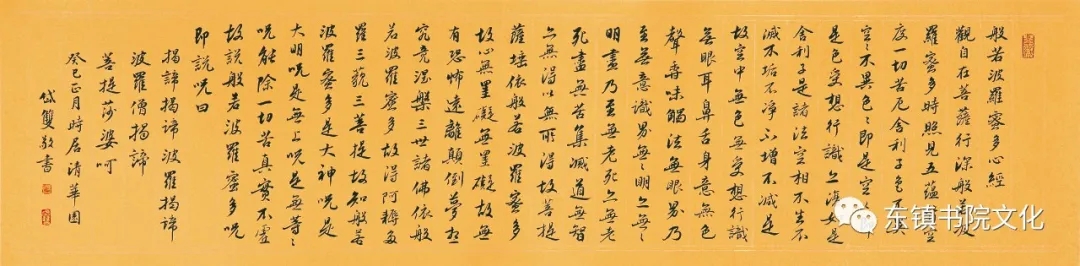 般若波羅密多心經
觀自在菩薩行深般若波
羅密多時照見五蘊皆空
度一切苦厄舍利子色不異
空〻不異色〻即是空〻即
是色受想行識亦復如是
舍利子是諸法空相不生不
滅不垢不淨不增不減是
故空中無色無受想行識
無眼耳鼻舌身意無色
聲香味觸法無眼界乃
至無意識界無〻明亦無〻
明盡乃至無老死亦無老
死盡無苦集滅道無智
亦無得以無所得故菩提
薩埵依般若波羅密多
故心無罣礙無罣礙故無
有恐怖遠離顛倒夢想
究竟涅槃三世諸佛依般
若波羅蜜多故得阿耨多
羅三藐三菩提故知般若
波羅蜜多是大神咒是
大明咒是無上咒是無等〻
咒能除一切苦真實不虛
故說般若波羅蜜多咒
即說咒曰
揭諦揭諦波羅揭諦
波羅僧揭諦
菩提莎婆呵
癸巳正月時居清華園
岱雙敬書
东镇书院文化